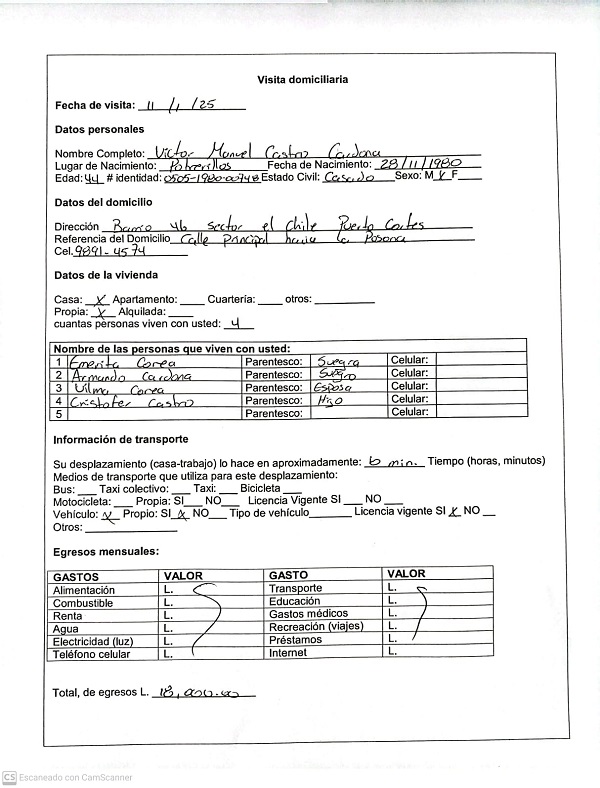 Visita domiciliaria
Fecha de visita: 11/1/25
Datos personales
Nombre Completo: Victor Manuel Castro Cardona
Lugar de Nacimiento: Potrerillos Fecha de Nacimiento: 28/11/1980
Edad: 44 # identidad: 0505-1980-00748 Estado Civil: Casado Sexo: M X F___
Datos del domicilio
Dirección Barrio sector el Chile Puerto Cortes
Referencia del Domicilio Calle Principal la
Cel. 9891-4574
Datos de la vivienda
Casa: X Apartamento: ____ Cuartería: ____ otros: ____
Propia: X Alquilada: ____
cuantas personas viven con usted: 4
Nombre de las personas que viven con usted:
1 Emerita Corea Parentesco: Suegra Celular:
2 Armando Cardona Parentesco: Suegro Celular:
3 Vilma Corea Parentesco: Esposa Celular:
4 Cristofer Castro Parentesco: Hijo Celular:
5 Parentesco: Celular:
Información de transporte
Su desplazamiento (casa-trabajo) lo hace en aproximadamente: 6 min. Tiempo (horas, minutos)
Medios de transporte que utiliza para este desplazamiento:
Bus: ___ Taxi colectivo: ___ Taxi: ___ Bicicleta ___
Motocicleta: ___ Propia: SI___ NO___ Licencia Vigente SI ___ NO ___
Vehículo: X Propio: SI X NO___ Tipo de vehículo_______ Licencia vigente SI X NO __
Otros: ____
Egresos mensuales:
GASTOS VALOR GASTO VALOR
Alimentación L. Transporte L.
Combustible L. Educación L.
Renta L. Gastos médicos L.
Agua L. Recreación (viajes) L.
Electricidad (luz) L. Préstamos L.
Teléfono celular L. Internet L.
Total, de egresos L. 18,000.00
CS Escaneado con CamScanner